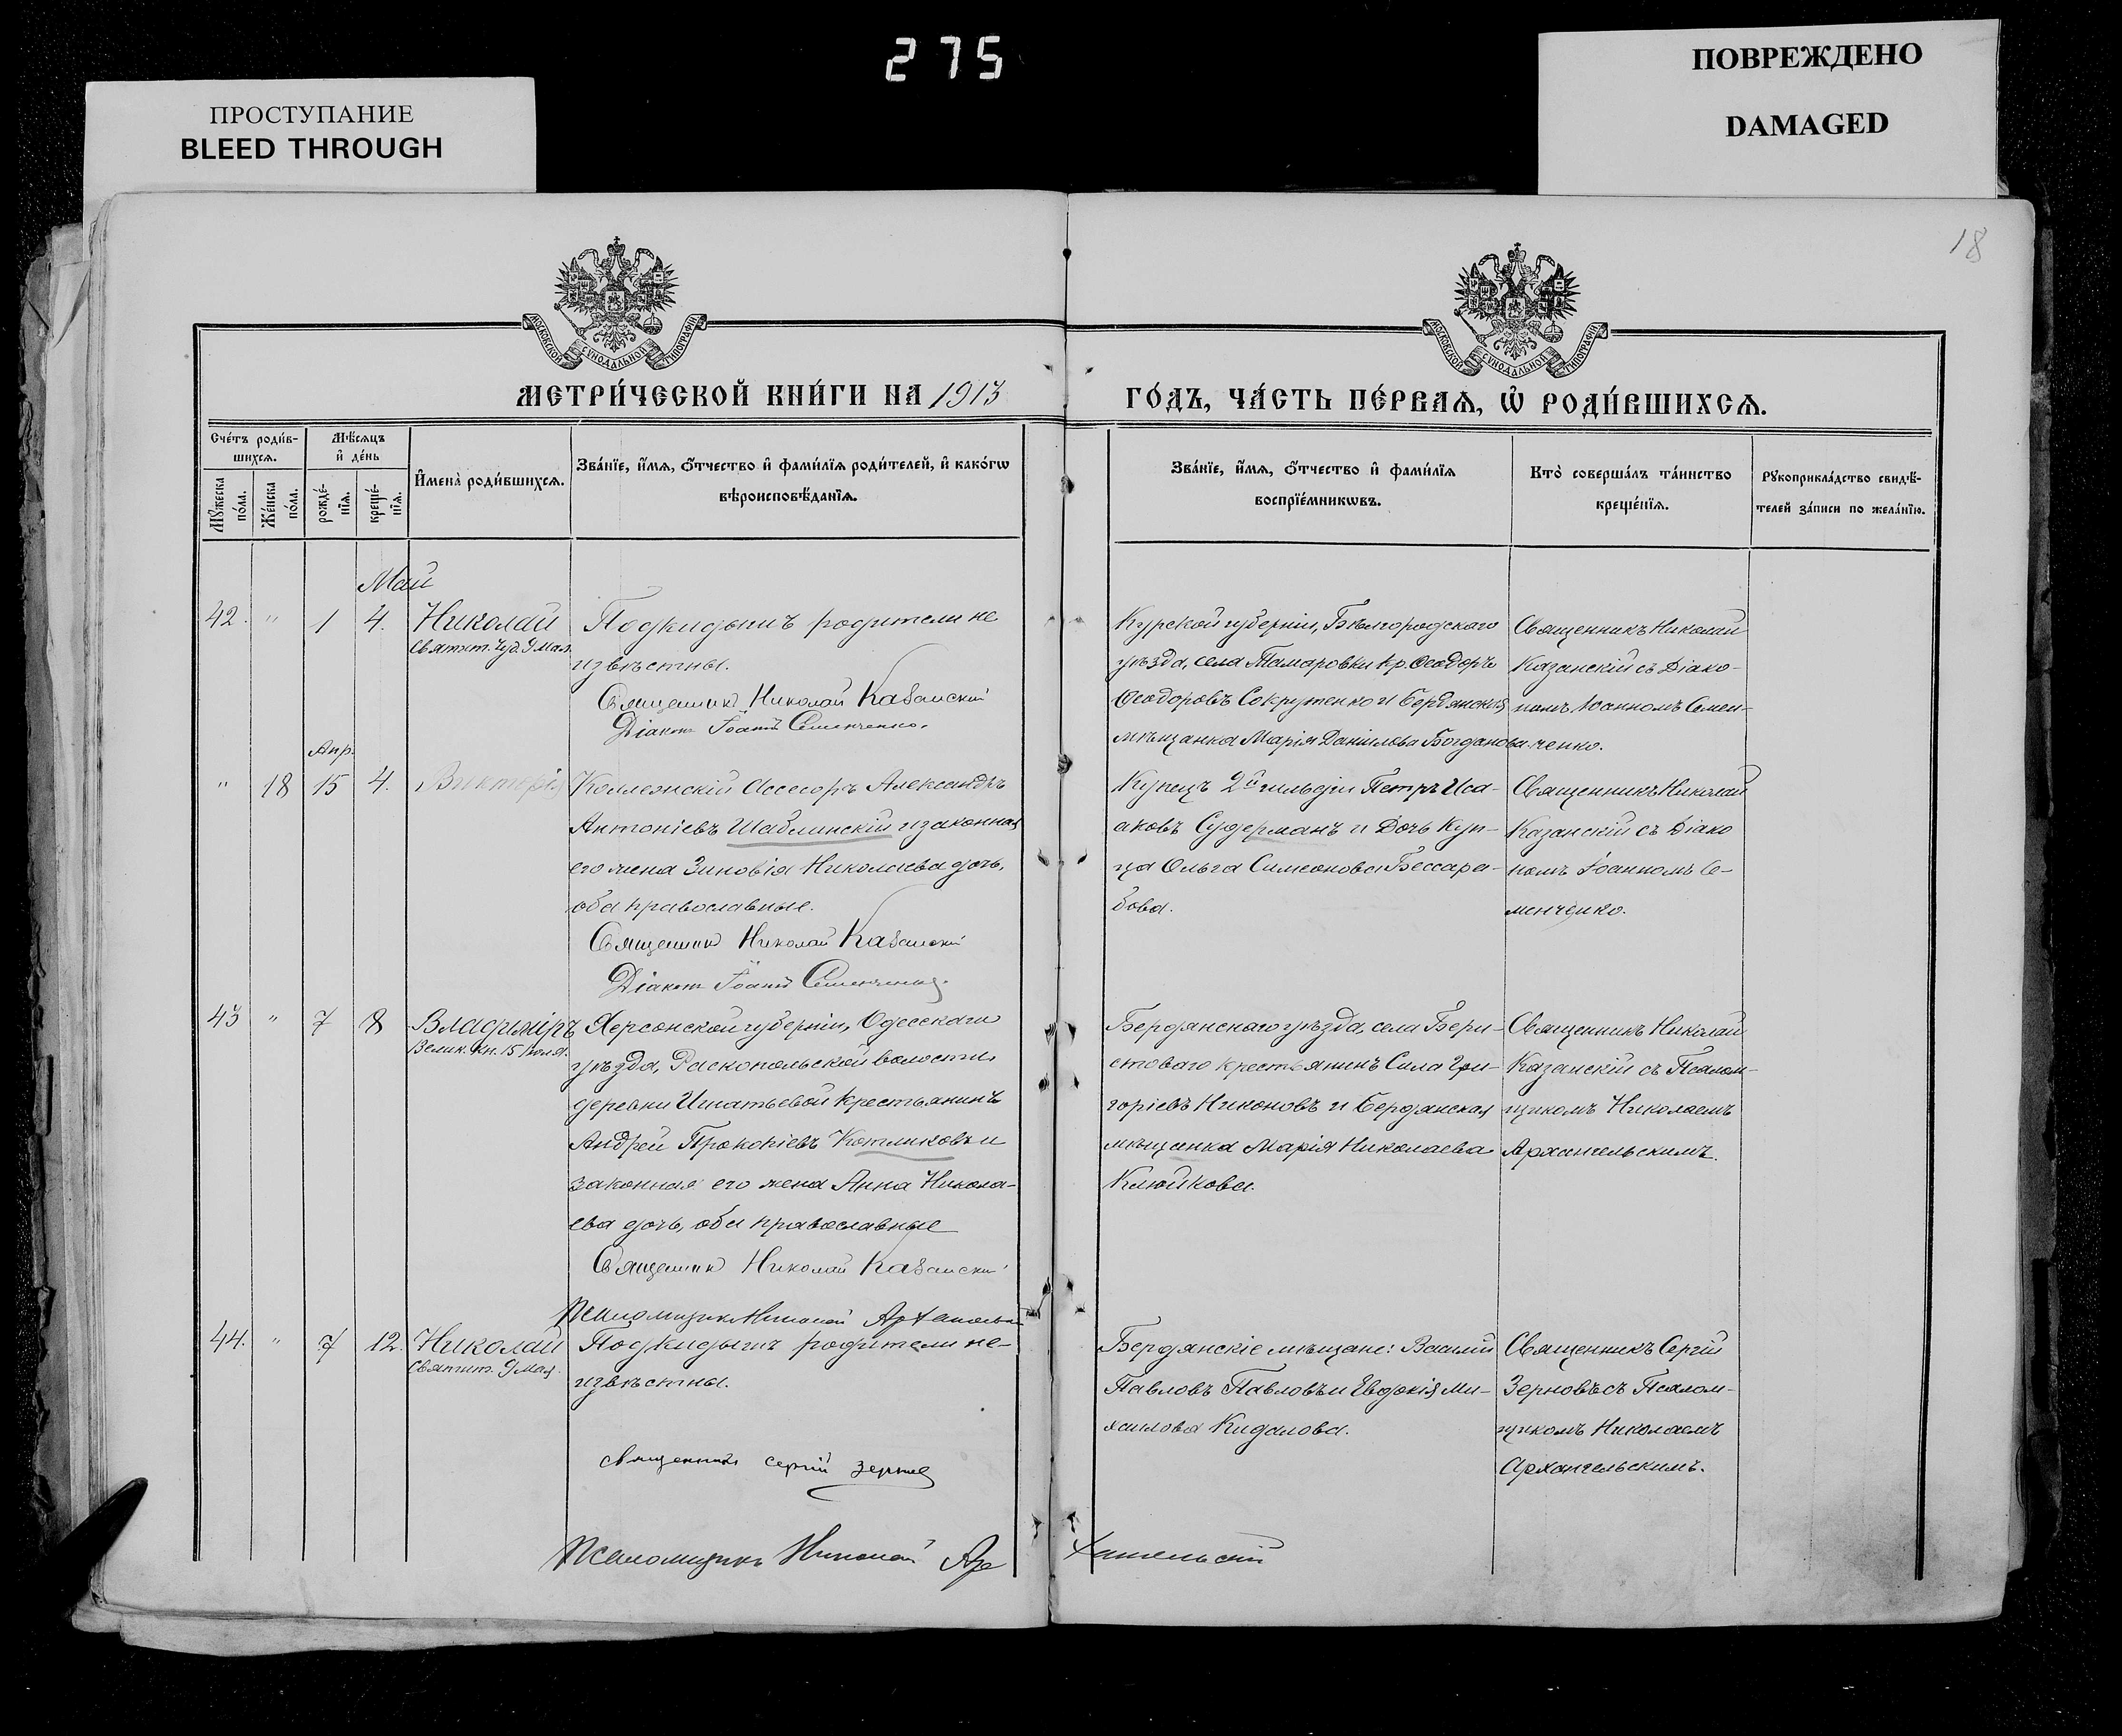 275
ПРОСТУПАНИЕ
BLEED THROUGH
ПОВРЕЖДЕНО
DAMAGED
18
МОСКОВСКОЙ СУНОДАЛЬНОЙ ТИПОГРАФІИ
МОСКОВСКОЙ СУНОДАЛЬНОЙ ТИПОГРАФІИ
МЕТРИ́ЧЕСКОЙ КНИ́ГИ НА 1913
ГО́ДЪ, ЧА́СТЬ ПЕ́РВАѦ, Ѡ҆ РОДИ́ВШИХСѦ.
Сче́тъ роди́в-
шихсѧ.
Мꙋ́жеска по́ла.
Же́нска по́ла.
Мѣ́сѧцъ
и҆ де́нь
рожде́-
нїѧ.
креще́-
нїѧ.
И҆мена̀ роди́вшихсѧ.
Зва́нїе, и҆́мѧ, ѻ҆́тчество и҆ фами́лїѧ роди́телей, и҆ како́гѡ
вѣроисповѣ́данїѧ.
Зва́нїе, и҆́мѧ, ѻ҆́тчество и҆ фами́лїѧ
воспрїе́мникѡвъ.
Кто̀ соверша́лъ та́инство
креще́нїѧ.
Рꙋкоприкла́дство свидѣ́-
телей за́писи по жела́нїю.
Май
42. " 1 4. Николай
Святит. Чуд. 9 Мая.
Подкидышъ родители не
извѣстны.
Священникъ Николай Казанскій
Діаконъ Іоаннъ Семенченко.
Курской губерніи, Бѣлгородскаго
уѣзда, села Тамаровки кр. Ѳеодоръ
Ѳеодоровъ Сокрутенко и Бердянская
мѣщанка Марія Даніилова Богданова.
Священникъ Николай
Казанскій съ Діако-
номъ Іоанномъ Семен-
ченко.
Апр.
" 18 15 4. Викторія
Коллежскій Ассесоръ Александръ
Антоніевъ Шаблинскій и законная
его жена Зиновія Николаева дочь,
оба православные.
Священникъ Николай Казанскій
Діаконъ Іоаннъ Семенченко.
Купецъ 2й гильдіи Петръ Иса-
аковъ Судерманъ и Дочь Куп-
ца Ольга Симеонова Бессара-
бова.
Священникъ Николай
Казанскій съ Діако
номъ Іоанномъ Се-
менченко.
43 " 7 8 Владиміръ
Велик. Кн. 15 Іюля.
Херсонской губерніи, Одесскаго
уѣзда, Раскопольской волости
деревни Игнатьевой крестьянинъ
Андрей Прокопіевъ Котликовъ и
законная его жена Анна Никола-
ева дочь, оба православные
Священникъ Николай Казанскій
Псаломщикъ Николай Архангельскій
Бердянскаго уѣзда, села Бери-
стоваго крестьянинъ Сила Гри-
горіевъ Никоновъ и Бердянская
мѣщанка Марія Николаева
Клюйкова.
Священникъ Николай
Казанскій съ Псалом-
щикомъ Николаемъ
Архангельскимъ.
44. " 7 12. Николай
Святит. 9 Мая.
Подкидышъ родители не-
извѣстны.
священникъ сергій зерновъ
Псаломщикъ Николай Архангельскій
Бердянскіе мѣщане: Василій
Павловъ Павловъ и Евдокія Ми-
хаилова Кидалова.
Священникъ Сергій
Зерновъ съ Псалом-
щикомъ Николаемъ
Архангельскимъ.